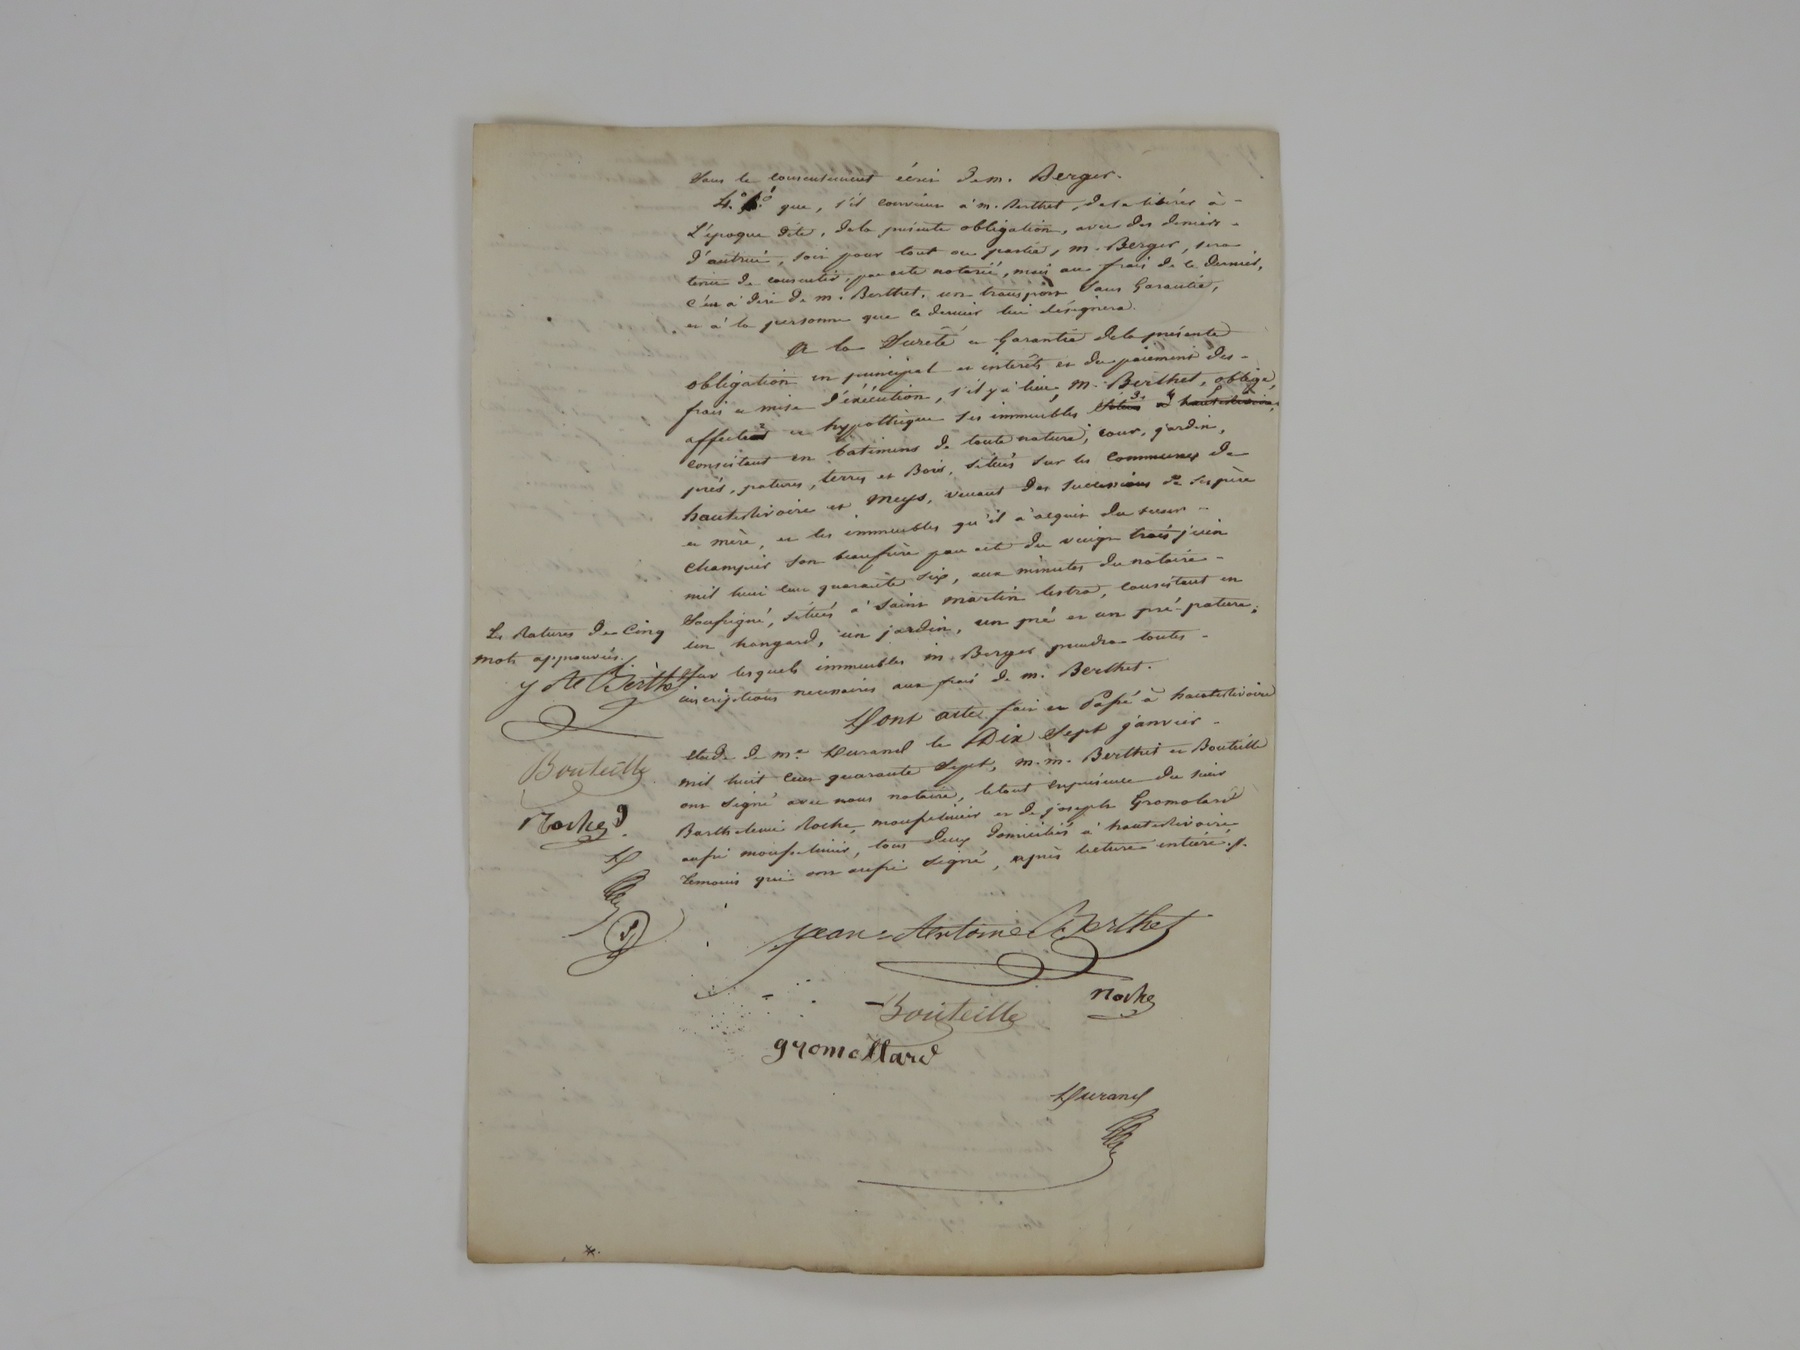 sans le consentement écrit de m. Berger.
4.° que, s'il convient à m. Berthet, de se libérer à
L'époque dite, de la présente obligation, avec des deniers
d'autrui, soit pour tout ou partie, m. Berger, sera
tenu de consentir, par acte notarié, mais aux frais de ce dernier,
c'est à dire de m. Berthet, un transport sans Garantie,
et à la personne que ce dernier lui désignera.
A la Sureté et Garantie de la présente
obligation en principal et intérêts et du paiement des
frais et mise d'éxécution, s'il y a lieu, m. Berthet, oblige,
affecte et hypothèque ses immeubles situés à hauterivoire,
consistant en batimens de toute nature, cour, jardin,
prés, patures, terres et Bois, situés sur les communes de
hauterivoire et Meys, venant des successions de ses père
et mère, et les immeubles qu'il a acquis du sieur
Champier son beaufrère par acte du vingt trois juin
mil huit cent quarante six, aux minutes du notaire
soussigné, situés à saint martin lestra, consistant en
un hangard, un jardin, un pré et un pré-pature;
Sur lesquels immeubles m. Berger prendra toutes
inscriptions necessaires aux frais de m. Berthet.
Les Ratures de cinq
mots approuvés.
J Ae Berthet
Bouteille
Roche
D
Dont acte fait et Passé à hauterivoire
étude de me. Durand le Dix Sept janvier
mil huit cent quarante sept, m.m. Berthet et Bouteille
ont signé avec nous notaire, le tout en présence du sieur
Barthelemi Roche, mousselinier et de joseph Gromolard
aussi mousselinier, tous deux domiciliés à hauterivoire
témoins qui ont aussi signé, après lecture entière.
jean-Antoine Berthet
Roche
Bouteille
gromollard
Durand